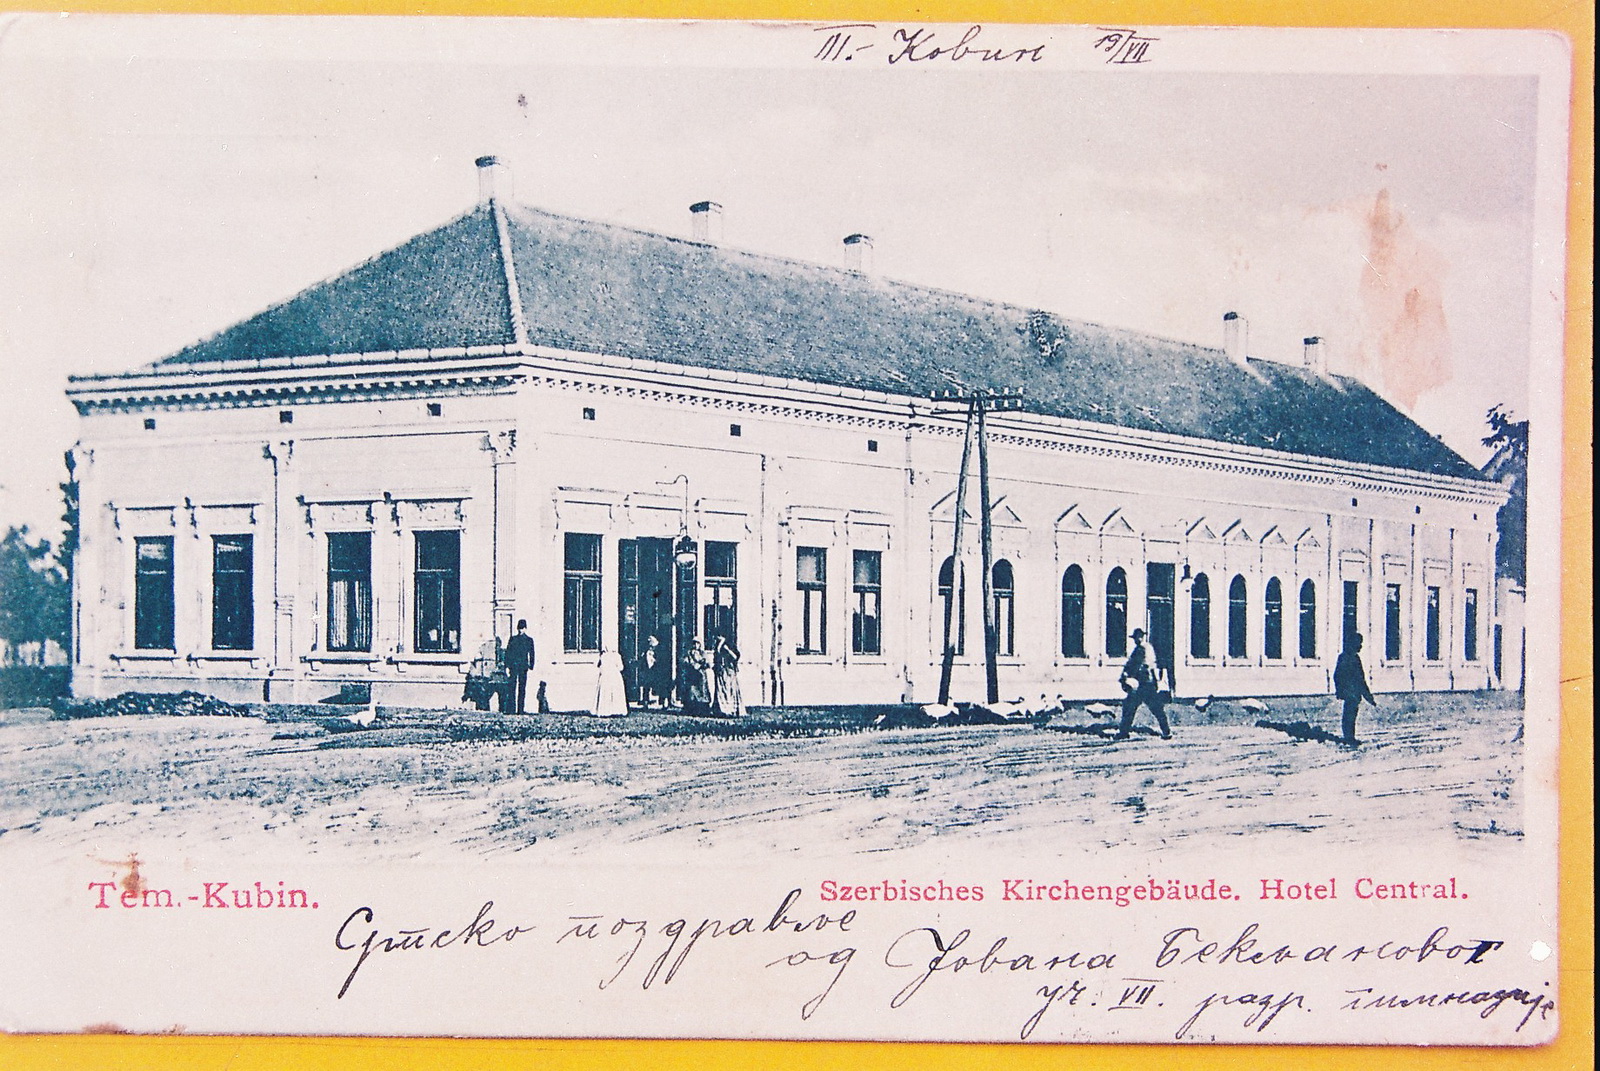 III.- Ковин 19/VII
Tem.-Kubin.
Szerbisches Kirchengebäude. Hotel Central.
Српско поздравље
од Јована
уч. VII. разр. гимназије